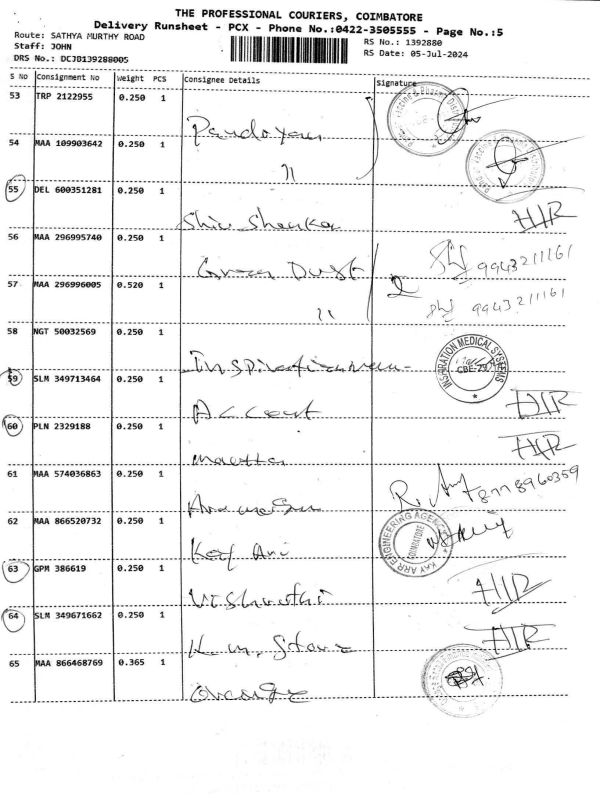 THE PROFESSIONAL COURIERS, COIMBATORE
Delivery Runsheet - PCX - Phone No.:0422-3505555 - Page No.:5
Route: SATHYA MURTHY ROAD
Staff: JOHN
DRS No.: DCJB139288005
RS No.: 1392880
RS Date: 05-Jul-2024
S No Consignment No Weight PCS Consignee Details Signature
53 TRP 2122955 0.250 1
54 MAA 109903642 0.250 1 "
55 DEL 600351281 0.250 1 Shiv Shankar HIR
56 MAA 296995740 0.250 1 Green Dust 9943211161
57 MAA 296996005 0.520 1 " 2 9943211161
58 NGT 50032569 0.250 1 INSPIRATION MEDICAL SYSTEMS CBE-29
59 SLM 349713464 0.250 1 HIR
60 PLN 2329188 0.250 1 HIR
61 MAA 574036863 0.250 1 8778960359
62 MAA 866520732 0.250 1 Kay Arr KAY ARR ENGINEERING AGENCY COIMBATORE
63 GPM 386619 0.250 1 HIR
64 SLM 349671662 0.250 1 HIR
65 MAA 866468769 0.365 1 Orange